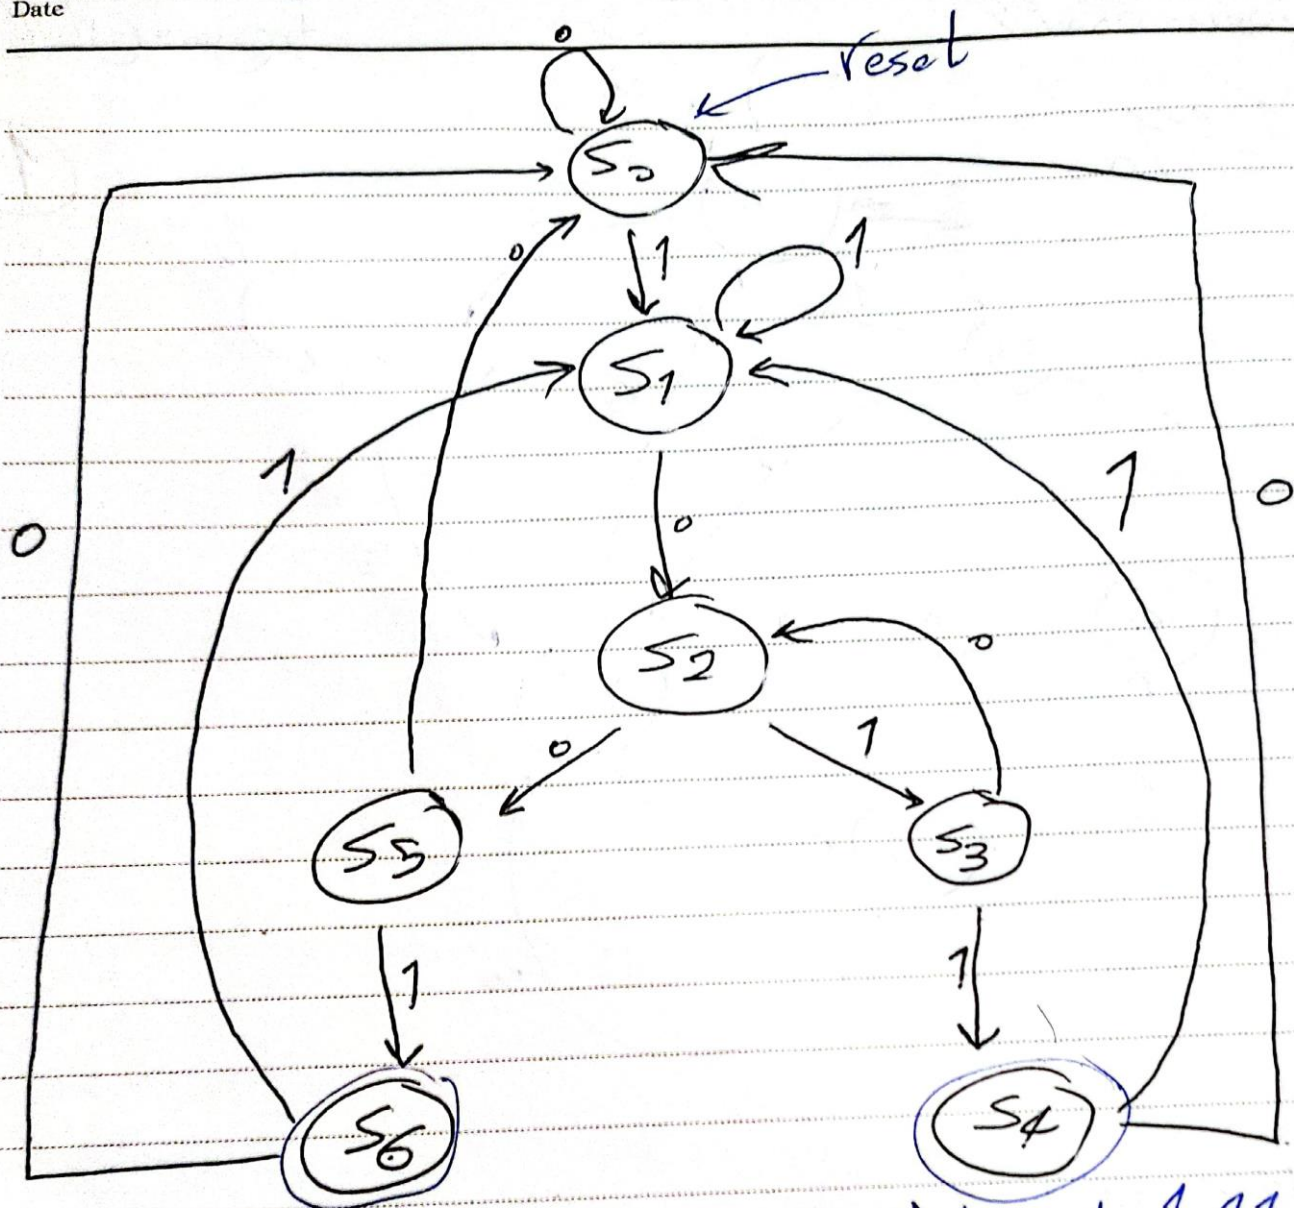 Date
0
reset
S0
0
1
1
S1
1
1
0
0
0
S2
0
0
1
S5
S3
1
1
S6
S4